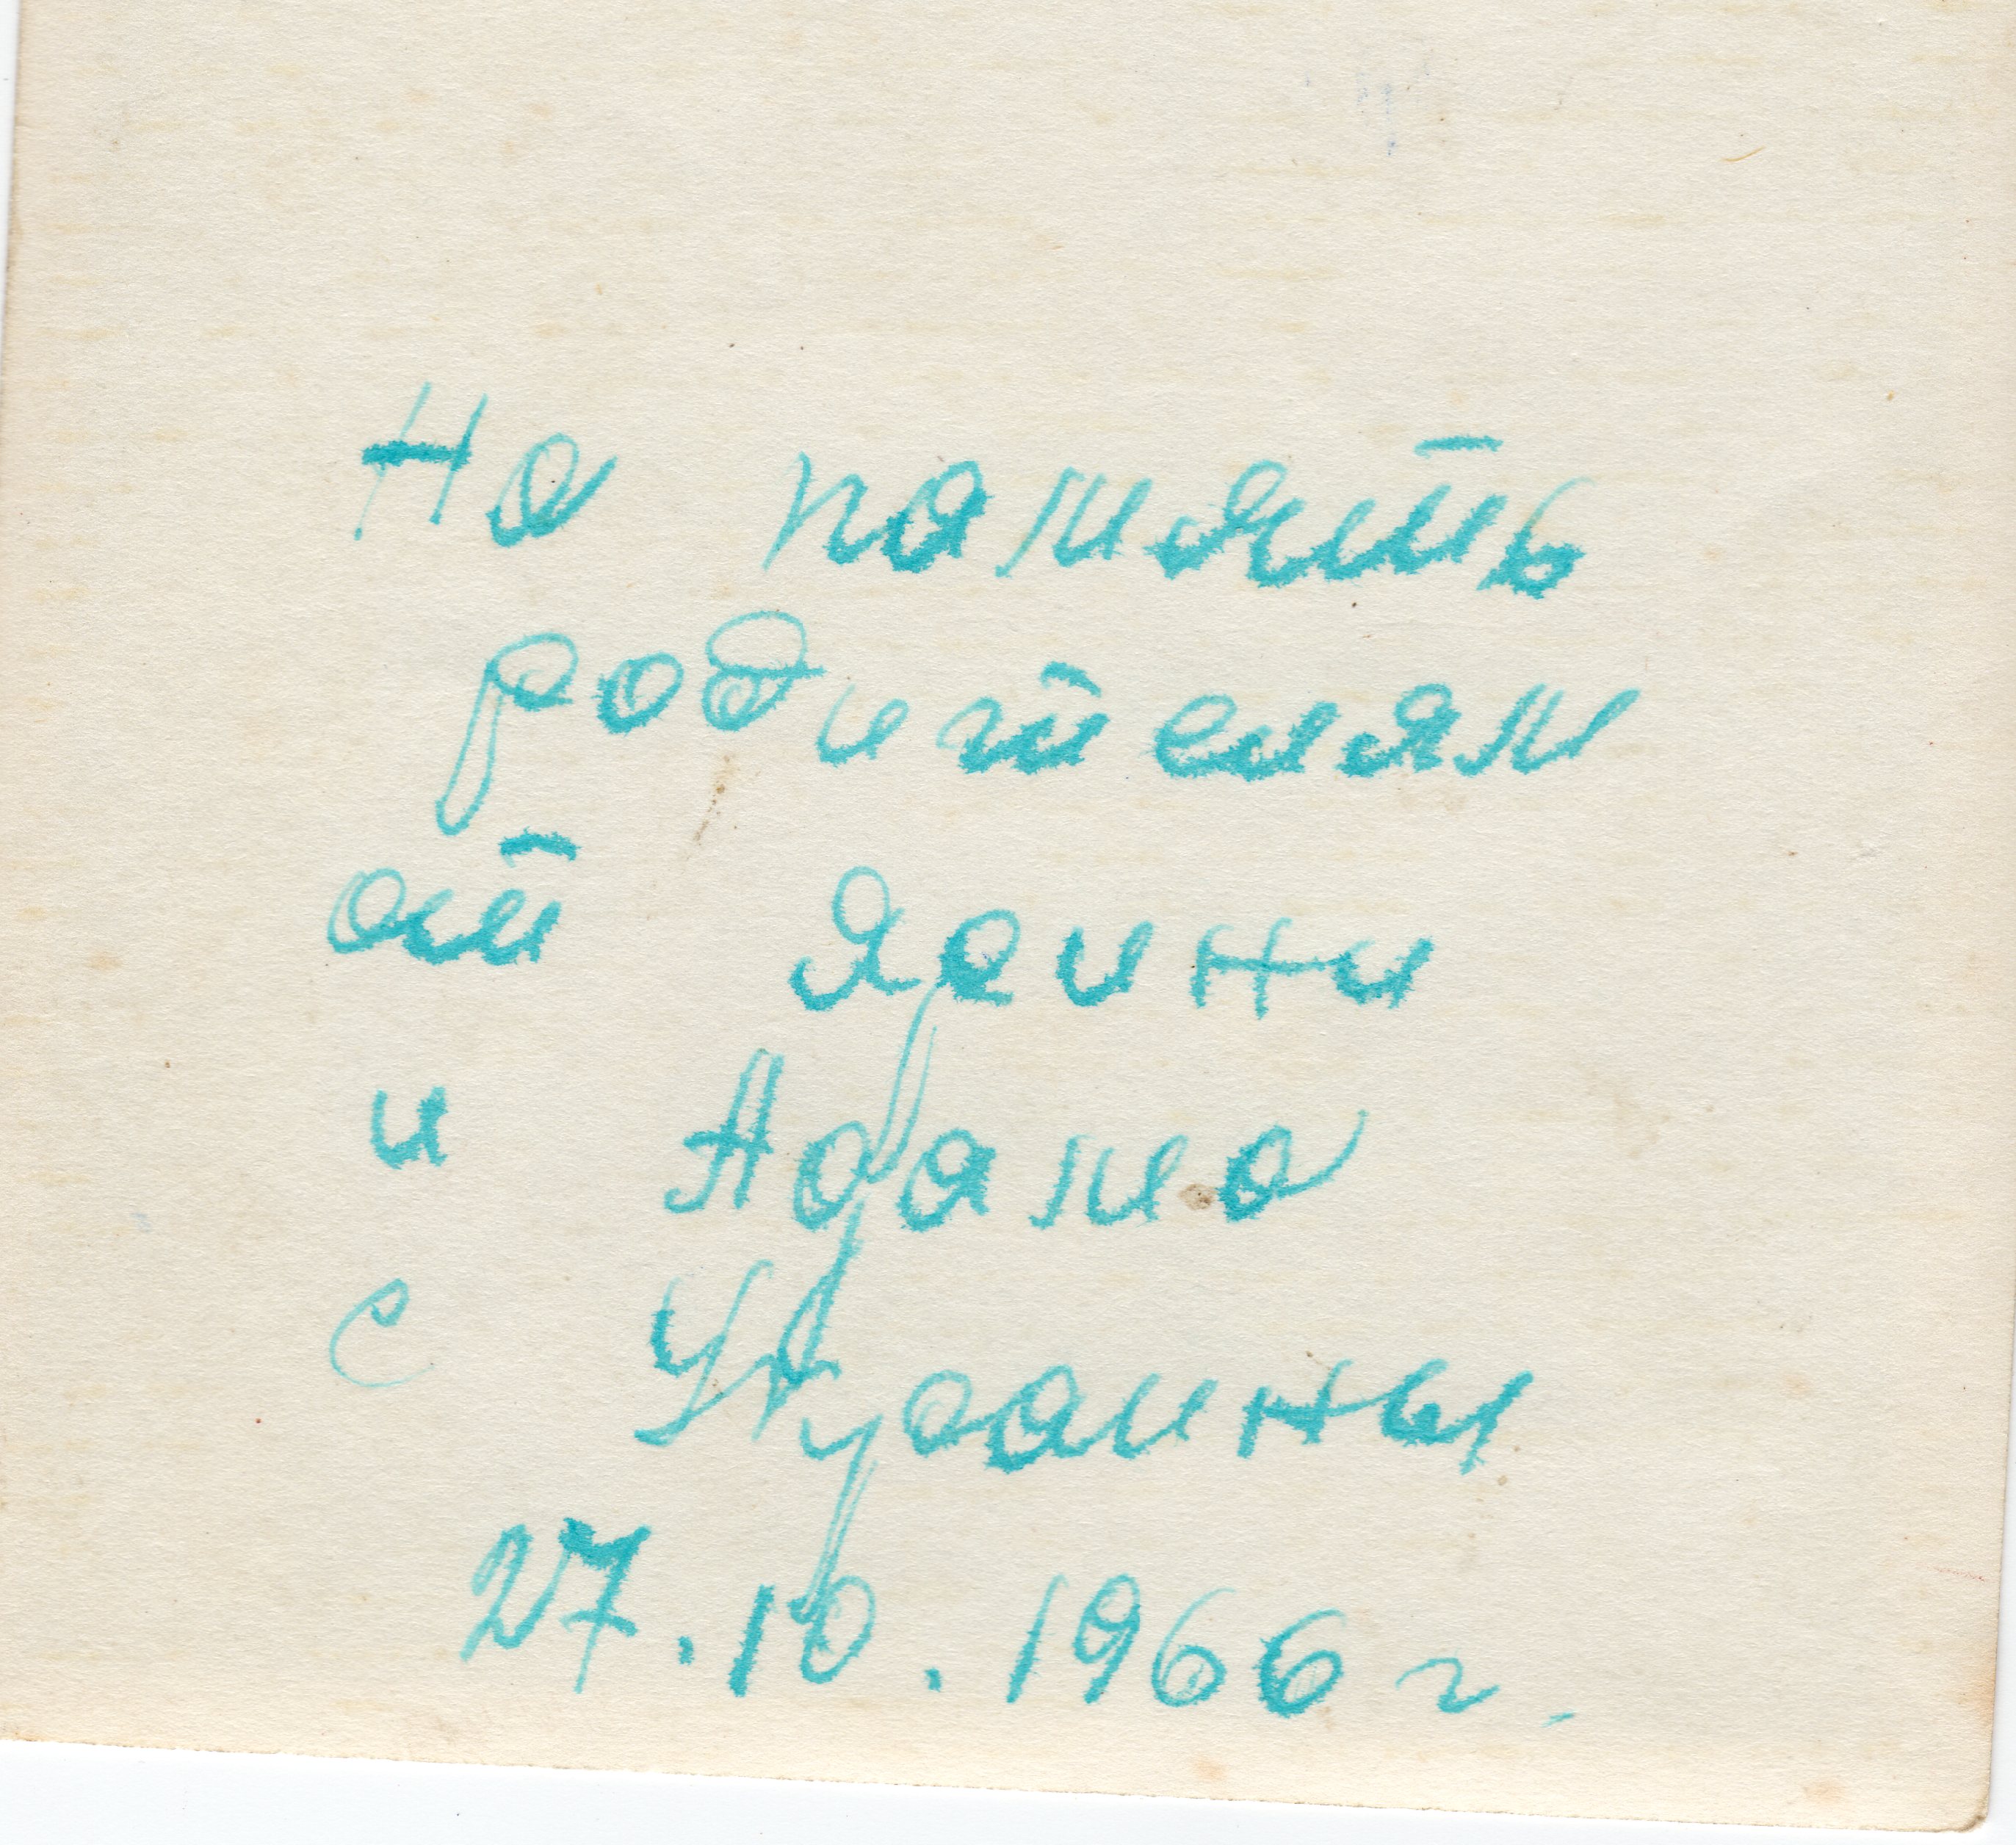 На память
родителям
от Ярини
и Адама
с Украины
27.10.1966 г.